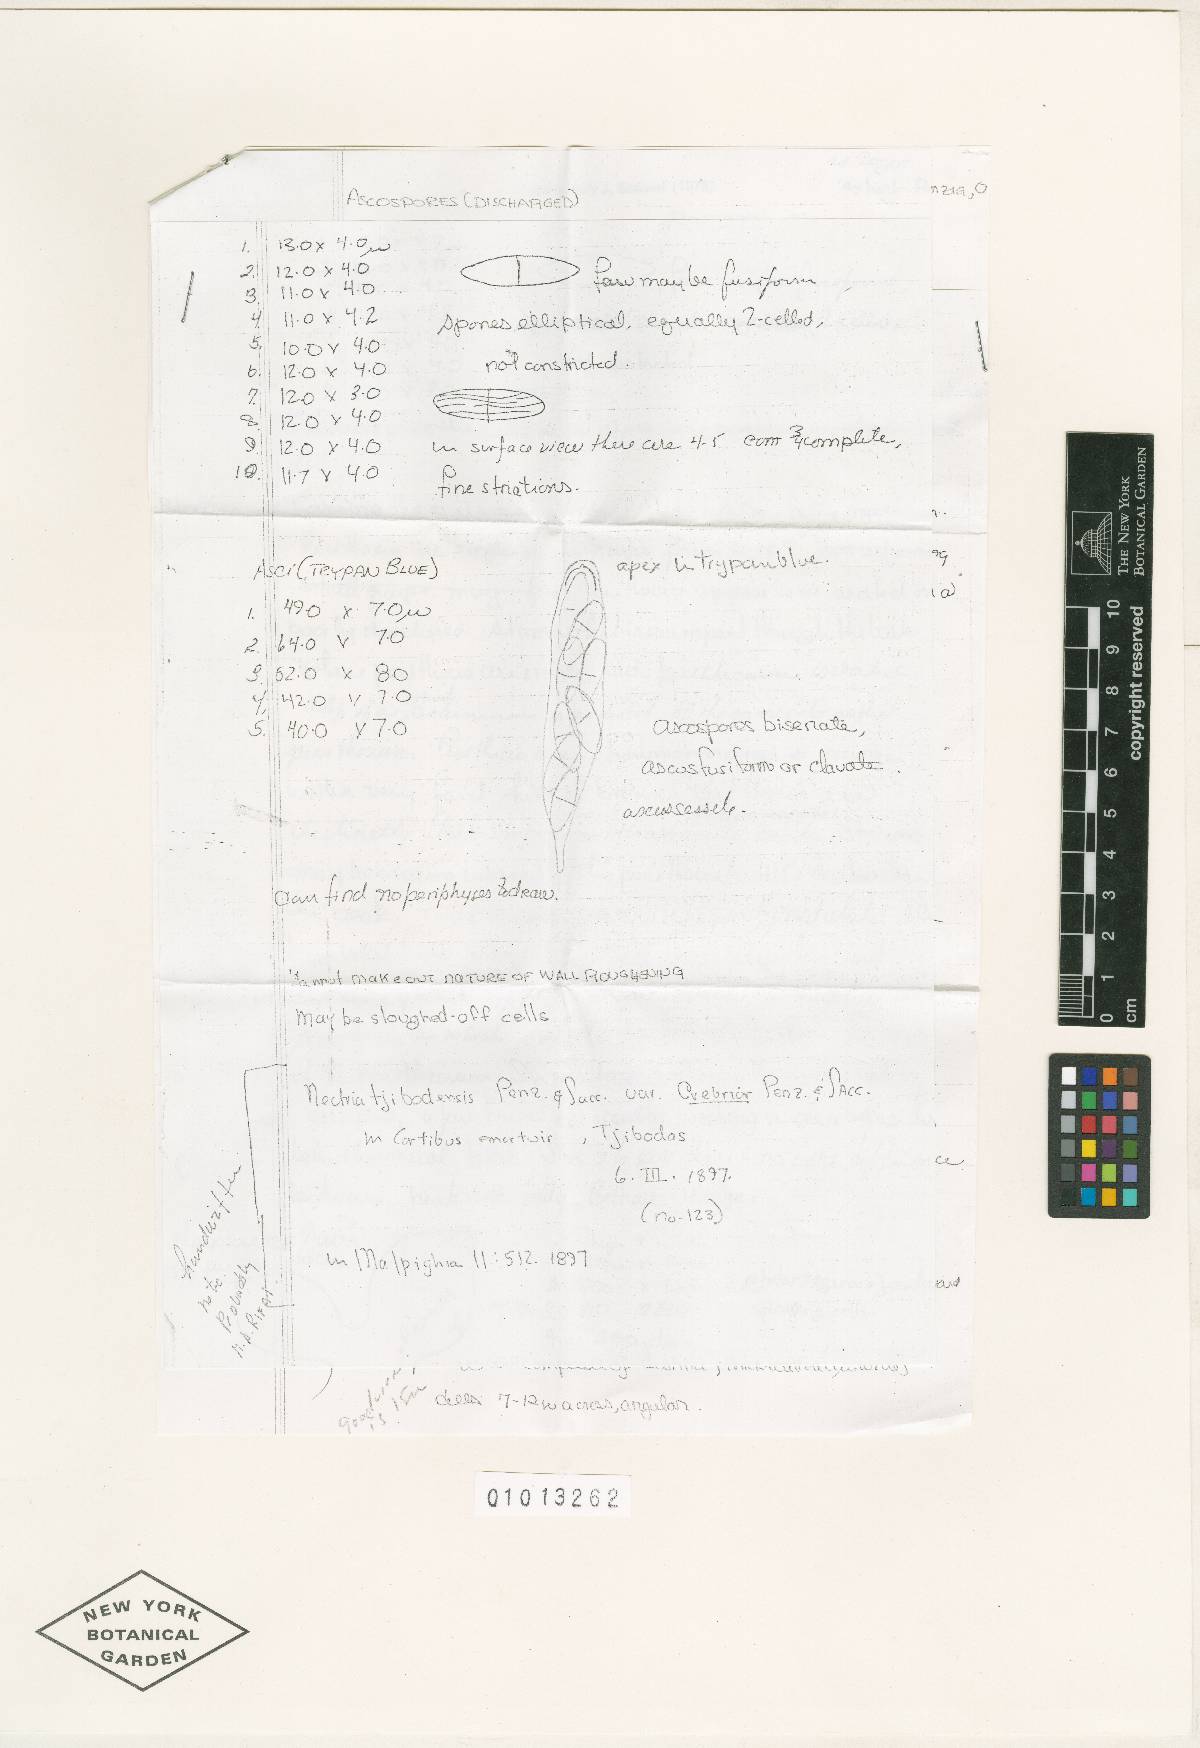 ASCOSPORES (DISCHARGED)
nzia, O
1. 13.0 x 4.0 µ
2. 12.0 x 4.0
3. 11.0 x 4.0
4. 11.0 x 4.2
5. 10.0 x 4.0
6. 12.0 x 4.0
7. 12.0 x 3.0
8. 12.0 x 4.0
9. 12.0 x 4.0
10. 11.7 x 4.0
few may be fusiform
spores elliptical, equally 2-celled,
not constricted.
in surface view there are 4-5 complete,
fine striations.
ASCI (TRYPAN BLUE)
1. 49.0 x 7.0 µ
2. 64.0 x 7.0
3. 52.0 x 8.0
4. 42.0 x 7.0
5. 40.0 x 7.0
apex in trypan blue.
ascospores biseriate,
ascus fusiform or clavate.
ascus sessile.
Can find no periphyses to draw.
Cannot make out NATURE OF WALL ROUGHENING
May be sloughed-off cells
Nectria tjibodensis Penz. & Sacc. var. Crebrior Penz. & Sacc.
in Cortibus emortuis, Tjibodas
6. III. 1897.
(no. 123)
in Malpighia 11:512. 1897
handwritten
note
Probably
M.A. Rifai
cells 7-12 µ across, angular.
01013262
NEW YORK
BOTANICAL
GARDEN
THE NEW YORK
BOTANICAL GARDEN
copyright reserved
0 1 2 3 4 5 6 7 8 9 10
cm